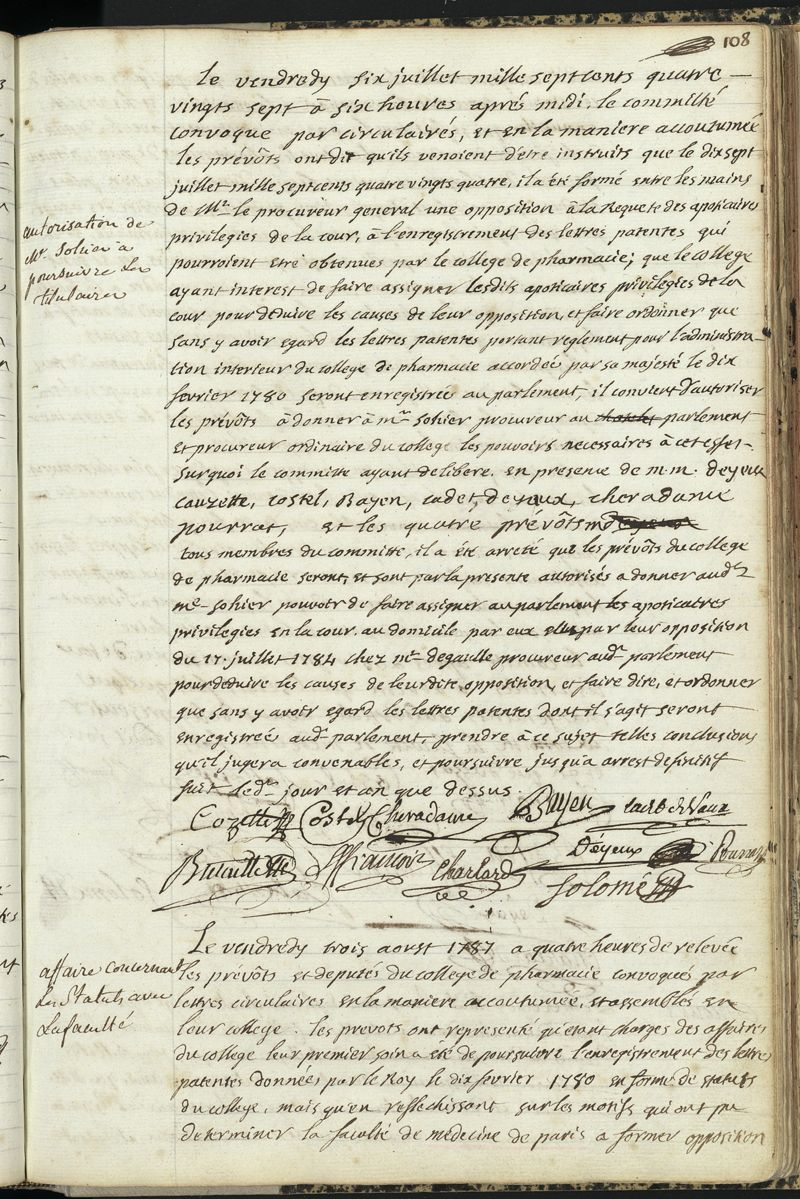 108
Le vendredy six juillet mille sept cents quatre —
vingts sept à six heures aprés midi, le committé
convoque par circulairés, et en la maniere accoutumée
les prévôts ont dit qu'ils venoient d'etre instruits que le dix sept
juillet mille sept cents quatre vingts quatre, il a été formé entre les mains
de Mr. le procureur general une opposition à la Requete des apoticaires
privilegies de la cour, à l'enregistrement des lettres patentes qui
pourroient etre obtenues par le college de pharmacie; que le college
ayant interest de faire assigner lesdits apoticaires privilegies de la
cour pour deduire les causes de leur opposition, et faire ordonner que
sans y avoir egard les lettres patentes portant reglement pour l'administra-
tion interieur du college de pharmacie accordée par sa majesté le dix
fevrier 1780 seront enregistrée au parlement, il convient d'autoriser
les prévôts à donner à mr. sohier procureur au chatelet parlement
et procureur ordinaire du college les pouvoirs necessaires à cet effet.
surquoi le committe ayant delibere. en presence de m.m. deyeux
cauzette, costel, Bayen, cadet, devaux, cheradame
pourrat, et les quatre prévôts
tous membres du committe, il a été arreté que les prévôts du college
de pharmacie seront, et sont par la presente autorisés a donner audt
me. sohier pouvoir de faire assigner au parlement les apoticaires
privilegies en la cour. au domicile par eux elu par leur opposition
du 17. juillet 1784 chez mr. degaulle procureur audt. parlement
pour deduire les causes de leur dite opposition, et faire dire, et ordonner
que sans y avoir egard les lettres patentes dont il s'agit seront
enregistreés audt. parlement, prendre à ce sujet telles conclusions
qu'il jugera convenables, et poursuivre jusqu'a arrest definitif
fait ledt. jour et an que dessus.
Cozette Costel Cheradame Bayen cadet deVaux
Deyeux Pourrat
Brunillette François Charlard
Solomé
autorisation de
Mr. Sohier à
poursuivre les
titulaires
Le vendredy trois aoust 1787 a quatre heures de relevée
les prévôts et deputés du college de pharmacie convoqueés par
lettres circulaires en la maniere accoutumée, et assemblés en
leur college. les prevots ont representé qu'etant charges des affaires
du college leur premier soin a été de poursuivre l'enregistrement des lettres
patentes données par le Roy le dix fevrier 1780 en forme de statuts
du college. mais qu'en reflechissant sur les motifs qui ont pu
determiner la faculté de medecine de paris a former opposition
affaire concernant
les Statuts avec
la faculté